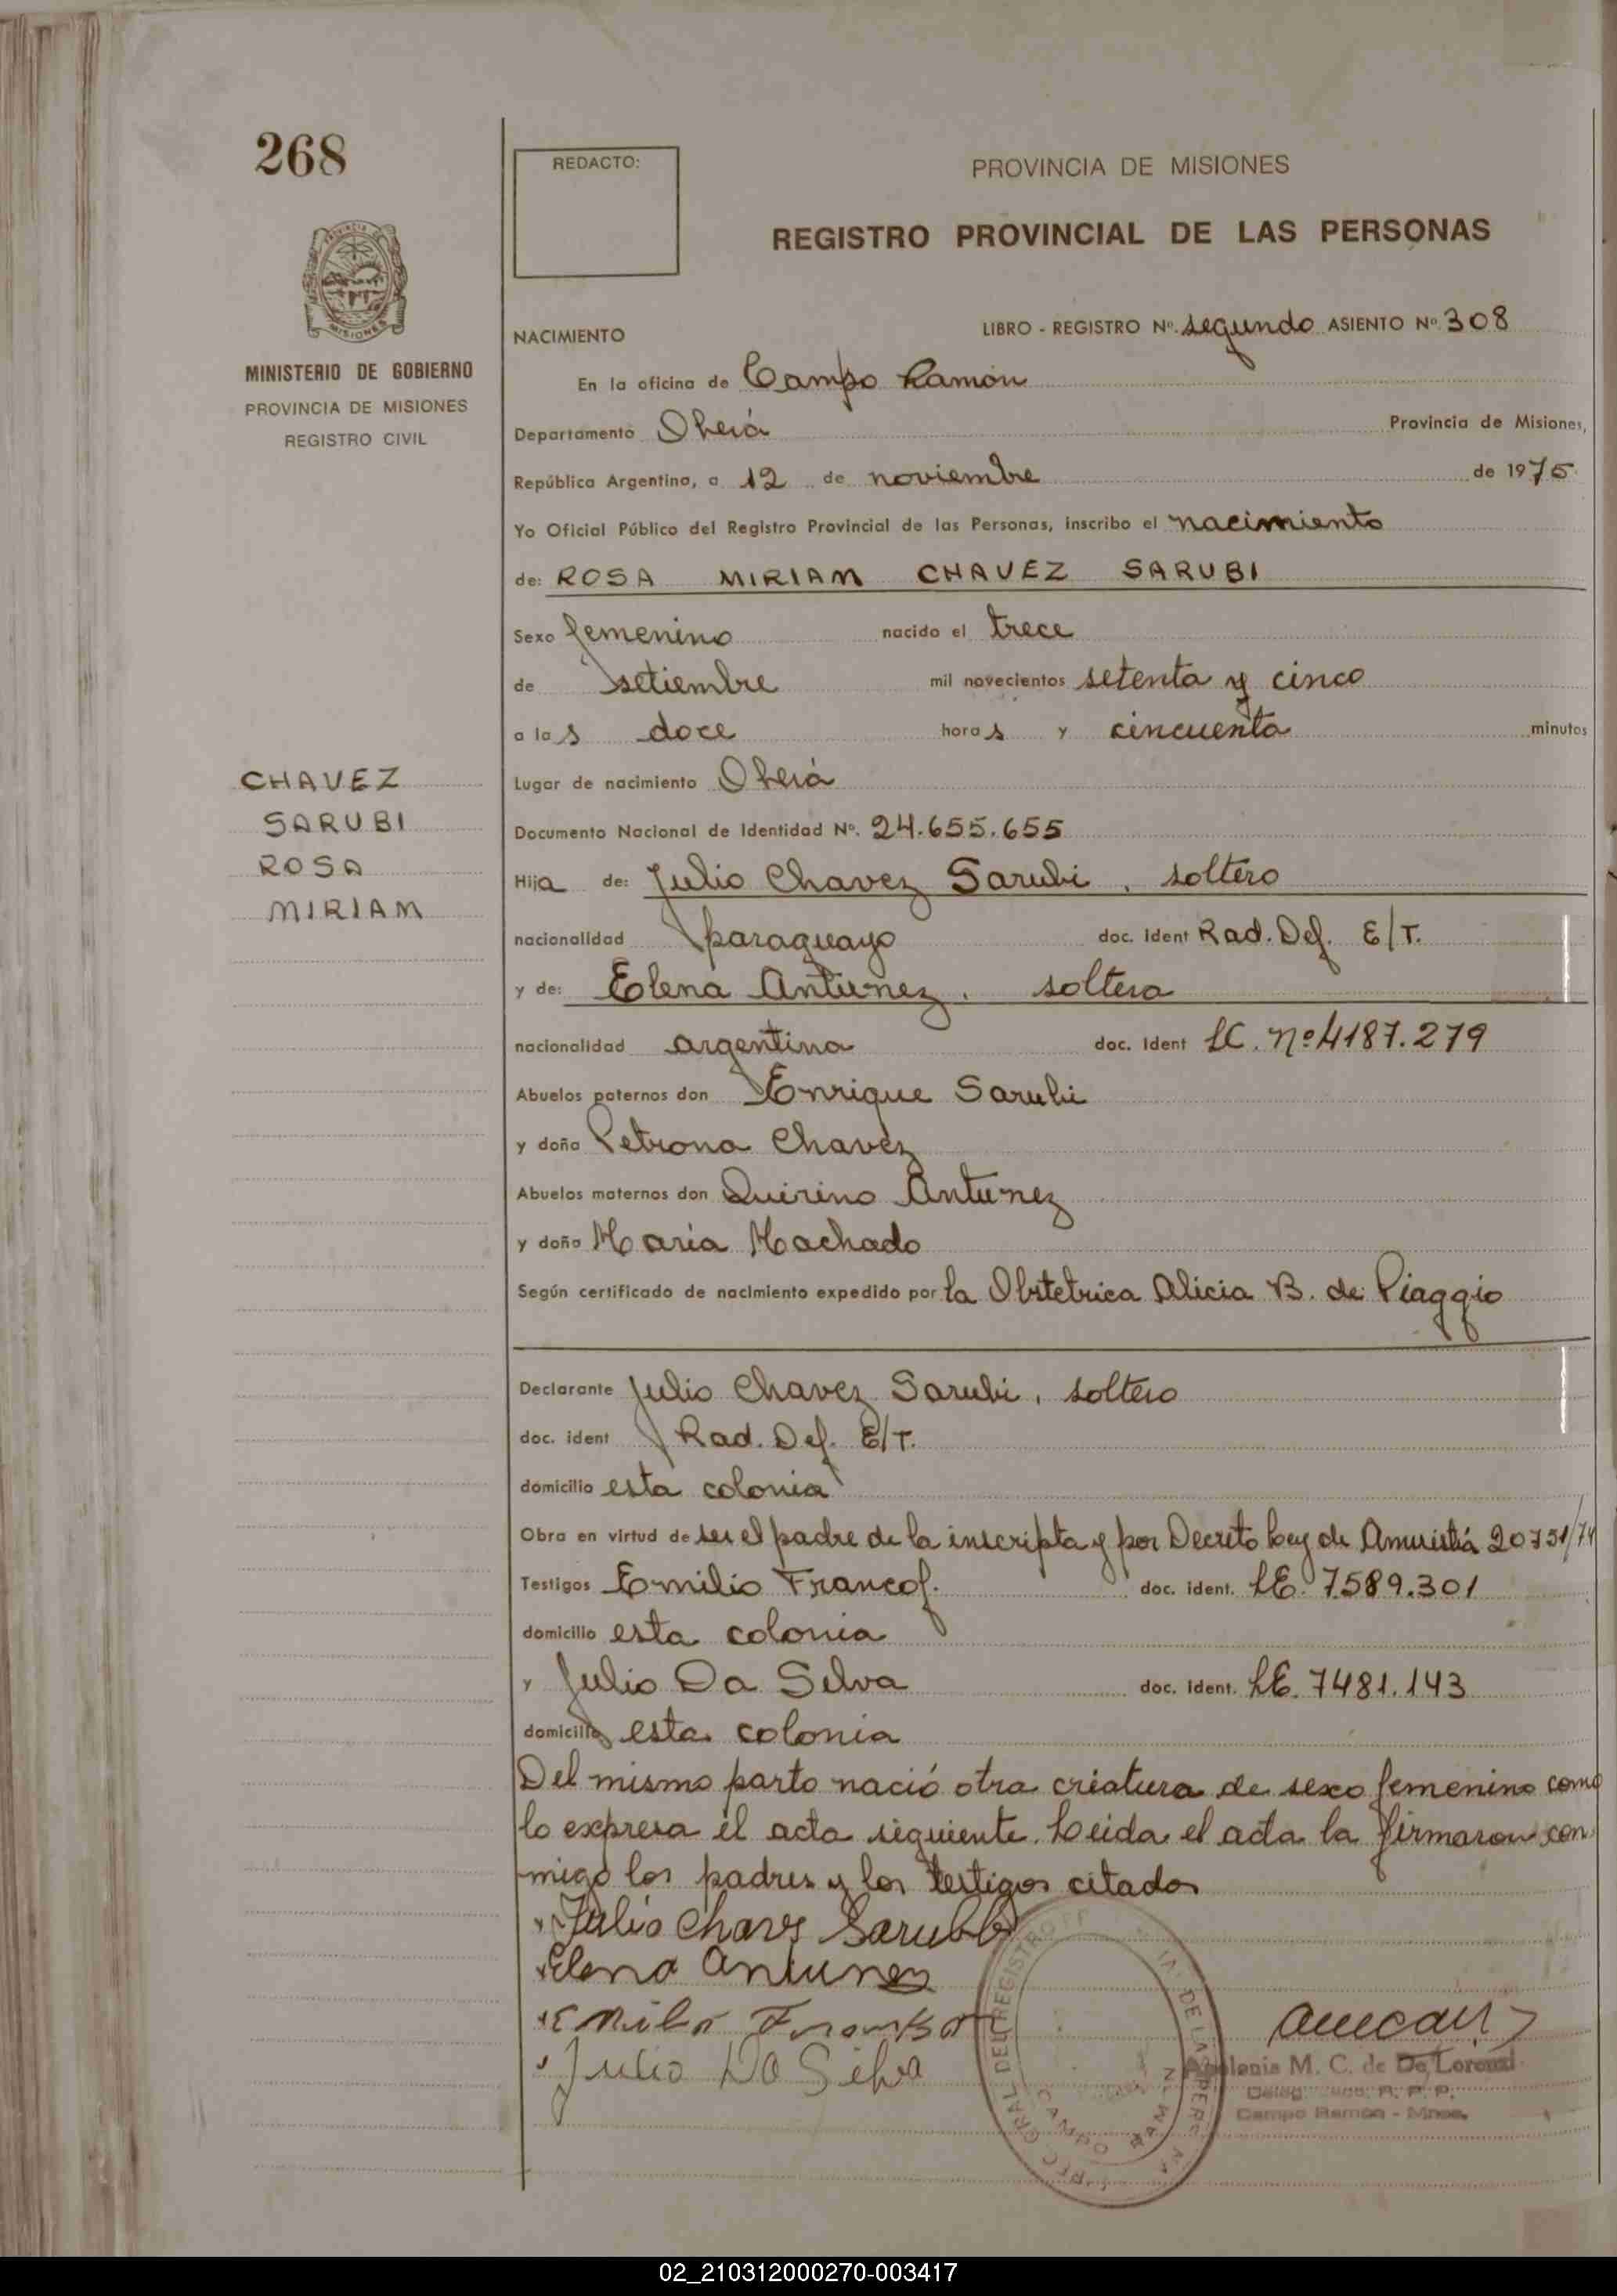 268
REDACTO:
PROVINCIA DE MISIONES
REGISTRO PROVINCIAL DE LAS PERSONAS
MISIONES
MINISTERIO DE GOBIERNO
PROVINCIA DE MISIONES
REGISTRO CIVIL
NACIMIENTO
LIBRO - REGISTRO Nº. segundo ASIENTO Nº. 308
En la oficina de Campo Ramón
Departamento Oberá Provincia de Misiones,
República Argentina, a 12 de noviembre de 1975
Yo Oficial Público del Registro Provincial de las Personas, inscribo el nacimiento
de: ROSA MIRIAM CHAVEZ SARUBI
Sexo femenino nacido el trece
de setiembre mil novecientos setenta y cinco
a las doce horas y cincuenta minutos
CHAVEZ
SARUBI
ROSA
MIRIAM
Lugar de nacimiento Oberá
Documento Nacional de Identidad Nº. 24.655.655
Hija de: Julio Chavez Sarubi, soltero
nacionalidad paraguayo doc. Ident Rad. Def. E/T.
y de: Elena Antunez, soltera
nacionalidad argentina doc. Ident LC. Nº 4187.279
Abuelos paternos don Enrique Sarubi
y doña Petrona Chavez
Abuelos maternos don Quirino Antunez
y doña Maria Machado
Según certificado de nacimiento expedido por la Obstetrica Alicia B. de Piaggio
Declarante Julio Chavez Sarubi, soltero
doc. ident Rad. Def. E/T.
domicilio esta colonia
Obra en virtud de ser el padre de la inscripta y por Decreto Ley de Amnistiá 20751/74
Testigos Emilio Francof. doc. ident. LE. 7.589.301
domicilio esta colonia
y Julio Da Silva doc. Ident. LE. 7481.143
domicilio esta colonia
Del mismo parto nació otra criatura de sexo femenino como
lo expresa el acta siguiente. Leida el acta la firmaron con
migo los padres y los testigos citados
Julio Chavez Sarubi
Elena Antunez
Julio Da Silva
CAMPO RAMON
M. C. de De Lorenzi
R. P. P.
Campo Ramón - Mnes.
02_210312000270-003417